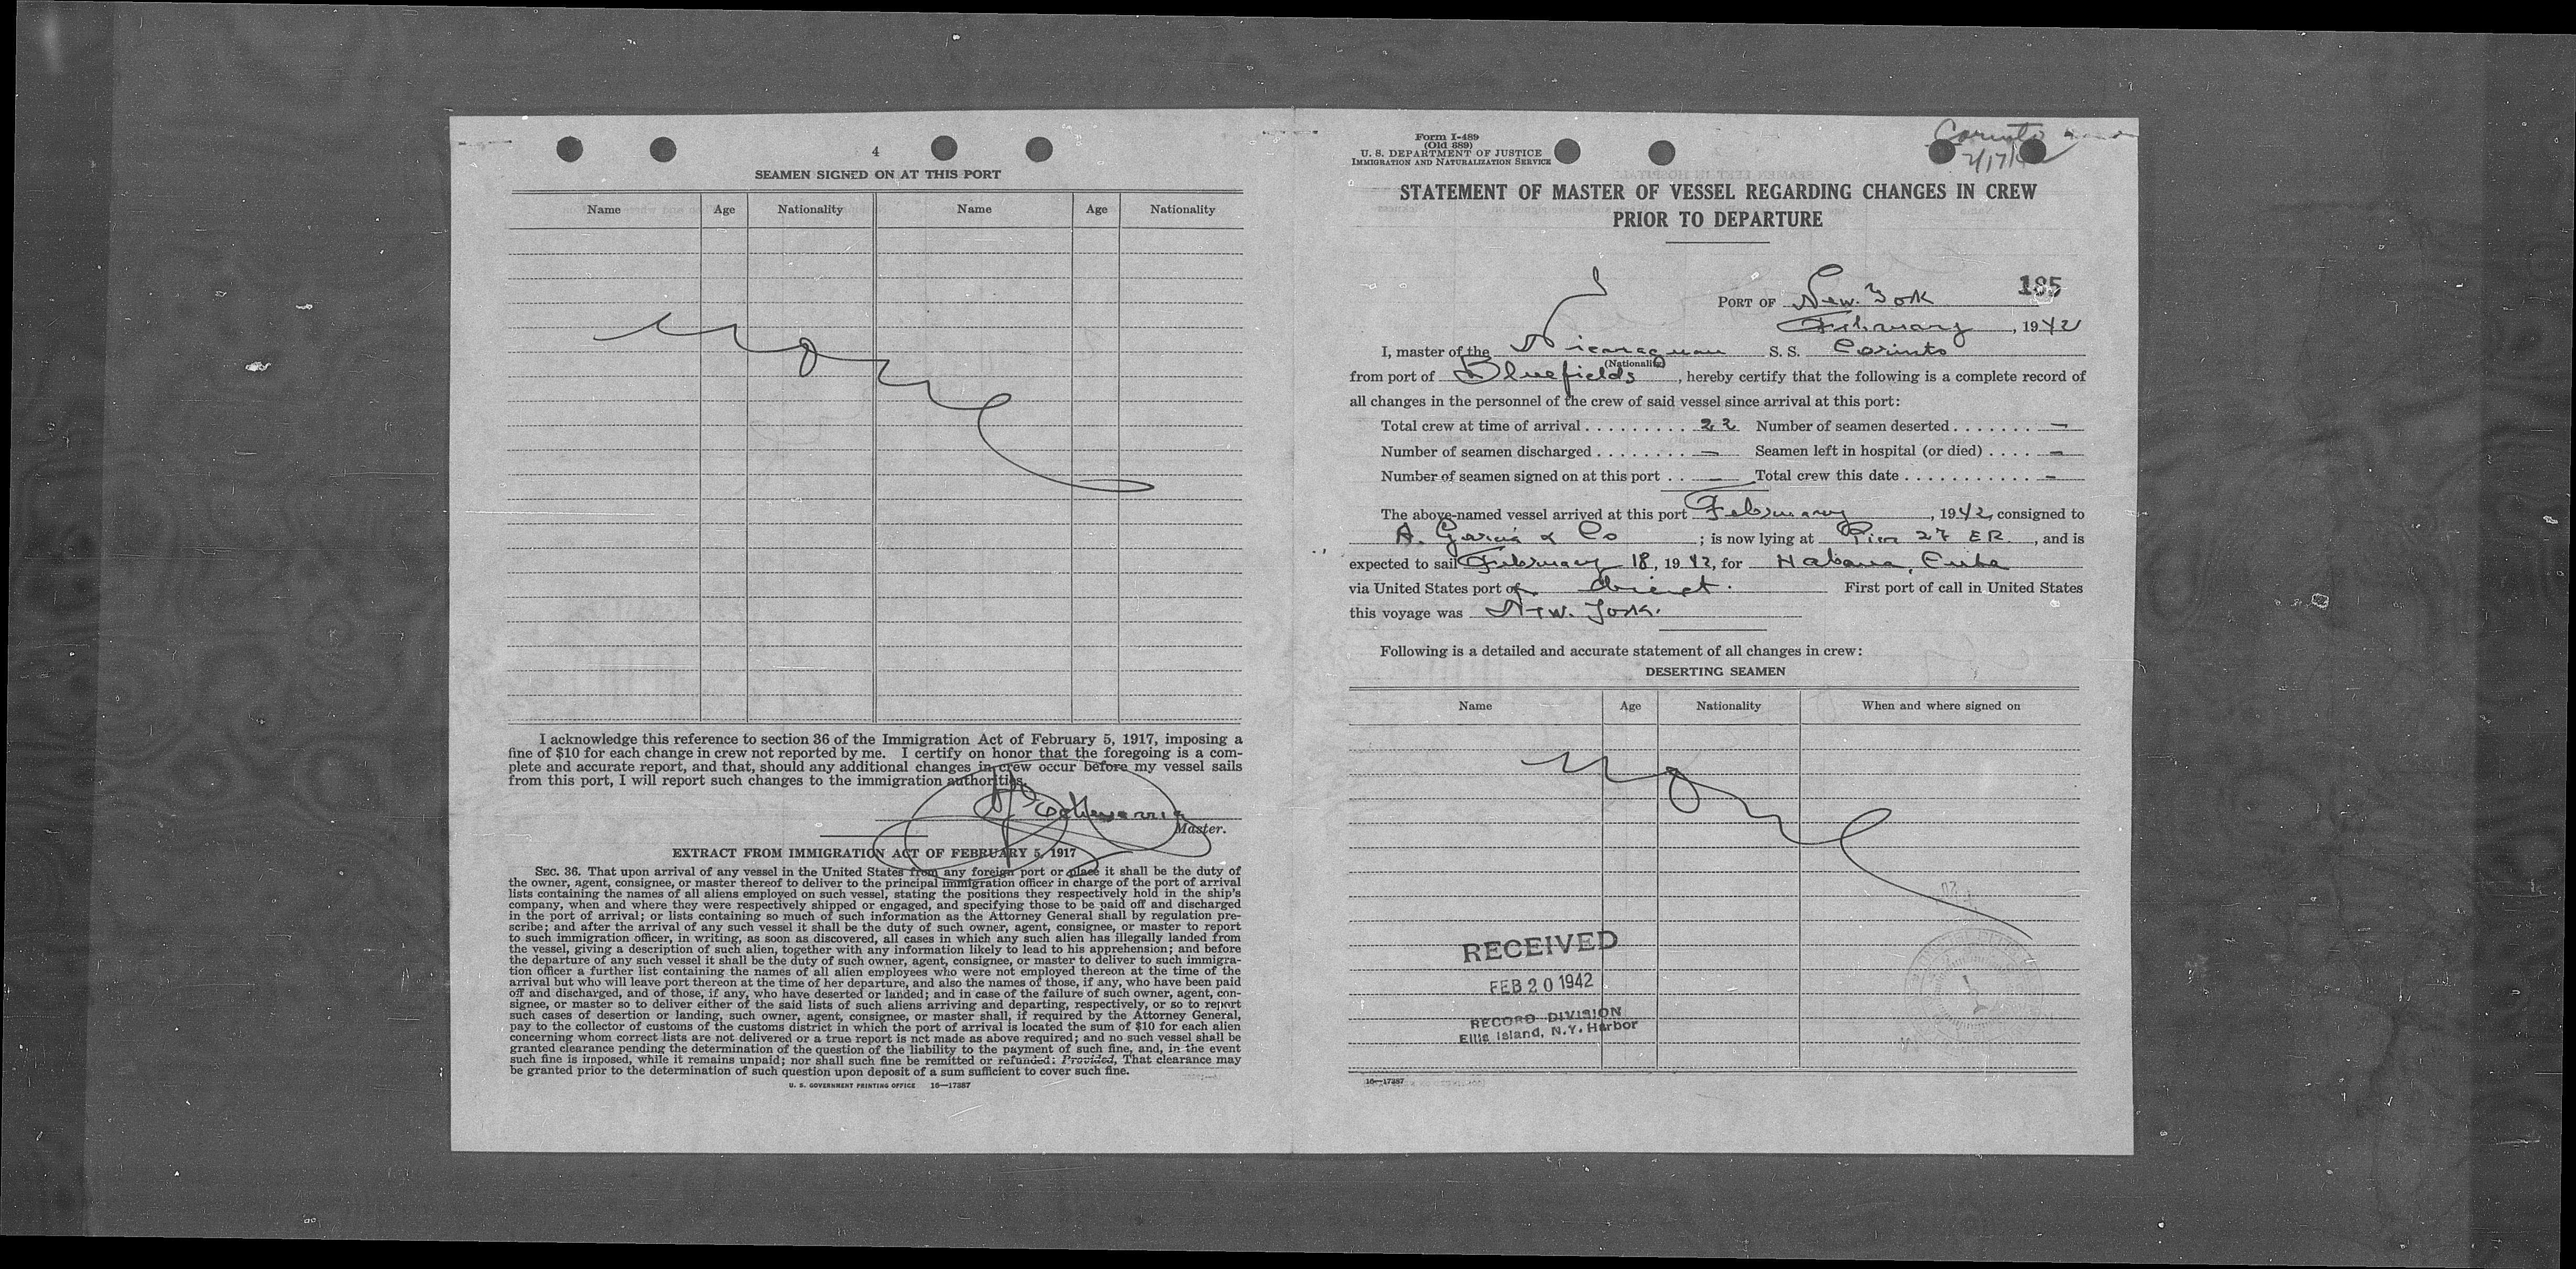 4
SEAMEN SIGNED ON AT THIS PORT
Name Age Nationality Name Age Nationality
None
I acknowledge this reference to section 36 of the Immigration Act of February 5, 1917, imposing a
fine of $10 for each change in crew not reported by me. I certify on honor that the foregoing is a com-
plete and accurate report, and that, should any additional changes in crew occur before my vessel sails
from this port, I will report such changes to the immigration authorities.
Echevarria
Master.
EXTRACT FROM IMMIGRATION ACT OF FEBRUARY 5, 1917
SEC. 36. That upon arrival of any vessel in the United States from any foreign port or place it shall be the duty of
the owner, agent, consignee, or master thereof to deliver to the principal immigration officer in charge of the port of arrival
lists containing the names of all aliens employed on such vessel, stating the positions they respectively hold in the ship's
company, when and where they were respectively shipped or engaged, and specifying those to be paid off and discharged
in the port of arrival; or lists containing so much of such information as the Attorney General shall by regulation pre-
scribe; and after the arrival of any such vessel it shall be the duty of such owner, agent, consignee, or master to report
to such immigration officer, in writing, as soon as discovered, all cases in which any such alien has illegally landed from
the vessel, giving a description of such alien, together with any information likely to lead to his apprehension; and before
the departure of any such vessel it shall be the duty of such owner, agent, consignee, or master to deliver to such immigra-
tion officer a further list containing the names of all alien employees who were not employed thereon at the time of the
arrival but who will leave port thereon at the time of her departure, and also the names of those, if any, who have been paid
off and discharged, and of those, if any, who have deserted or landed; and in case of the failure of such owner, agent, con-
signee, or master so to deliver either of the said lists of such aliens arriving and departing, respectively, or so to report
such cases of desertion or landing, such owner, agent, consignee, or master shall, if required by the Attorney General,
pay to the collector of customs of the customs district in which the port of arrival is located the sum of $10 for each alien
concerning whom correct lists are not delivered or a true report is not made as above required; and no such vessel shall be
granted clearance pending the determination of the question of the liability to the payment of such fine, and, in the event
such fine is imposed, while it remains unpaid; nor shall such fine be remitted or refunded: Provided, That clearance may
be granted prior to the determination of such question upon deposit of a sum sufficient to cover such fine.
U. S. GOVERNMENT PRINTING OFFICE 16—17387
Form I-489
(Old 689)
U. S. DEPARTMENT OF JUSTICE
IMMIGRATION AND NATURALIZATION SERVICE
Corinto
STATEMENT OF MASTER OF VESSEL REGARDING CHANGES IN CREW
PRIOR TO DEPARTURE
185
PORT OF New York
February, 1942
I, master of the Nicaraguan S. S. Corinto
(Nationality)
from port of Bluefields, hereby certify that the following is a complete record of
all changes in the personnel of the crew of said vessel since arrival at this port:
Total crew at time of arrival . . . . . . . . . 22 Number of seamen deserted . . . . . . . —
Number of seamen discharged . . . . . . . . — Seamen left in hospital (or died) . . . . —
Number of seamen signed on at this port . . — Total crew this date . . . . . . . . . . . —
The above-named vessel arrived at this port February, 1942, consigned to
A. Garcia & Co; is now lying at Pier 27 ER., and is
expected to sail February 18, 1942, for Habana, Cuba
via United States port of direct. First port of call in United States
this voyage was New York.
Following is a detailed and accurate statement of all changes in crew:
DESERTING SEAMEN
Name Age Nationality When and where signed on
None
RECEIVED
FEB 20 1942
RECORD DIVISION
Ellis Island, N.Y. Harbor
16—17387